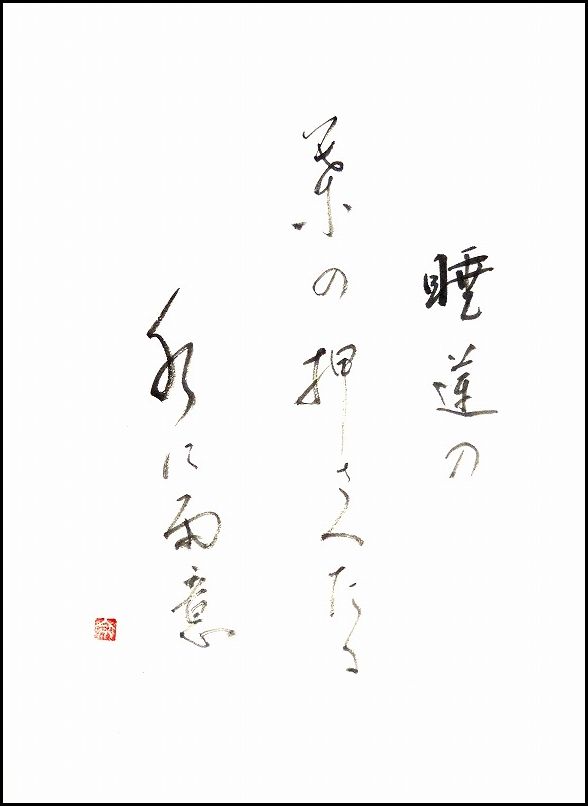 睡蓮の
葉の押さへたる
水に雨意